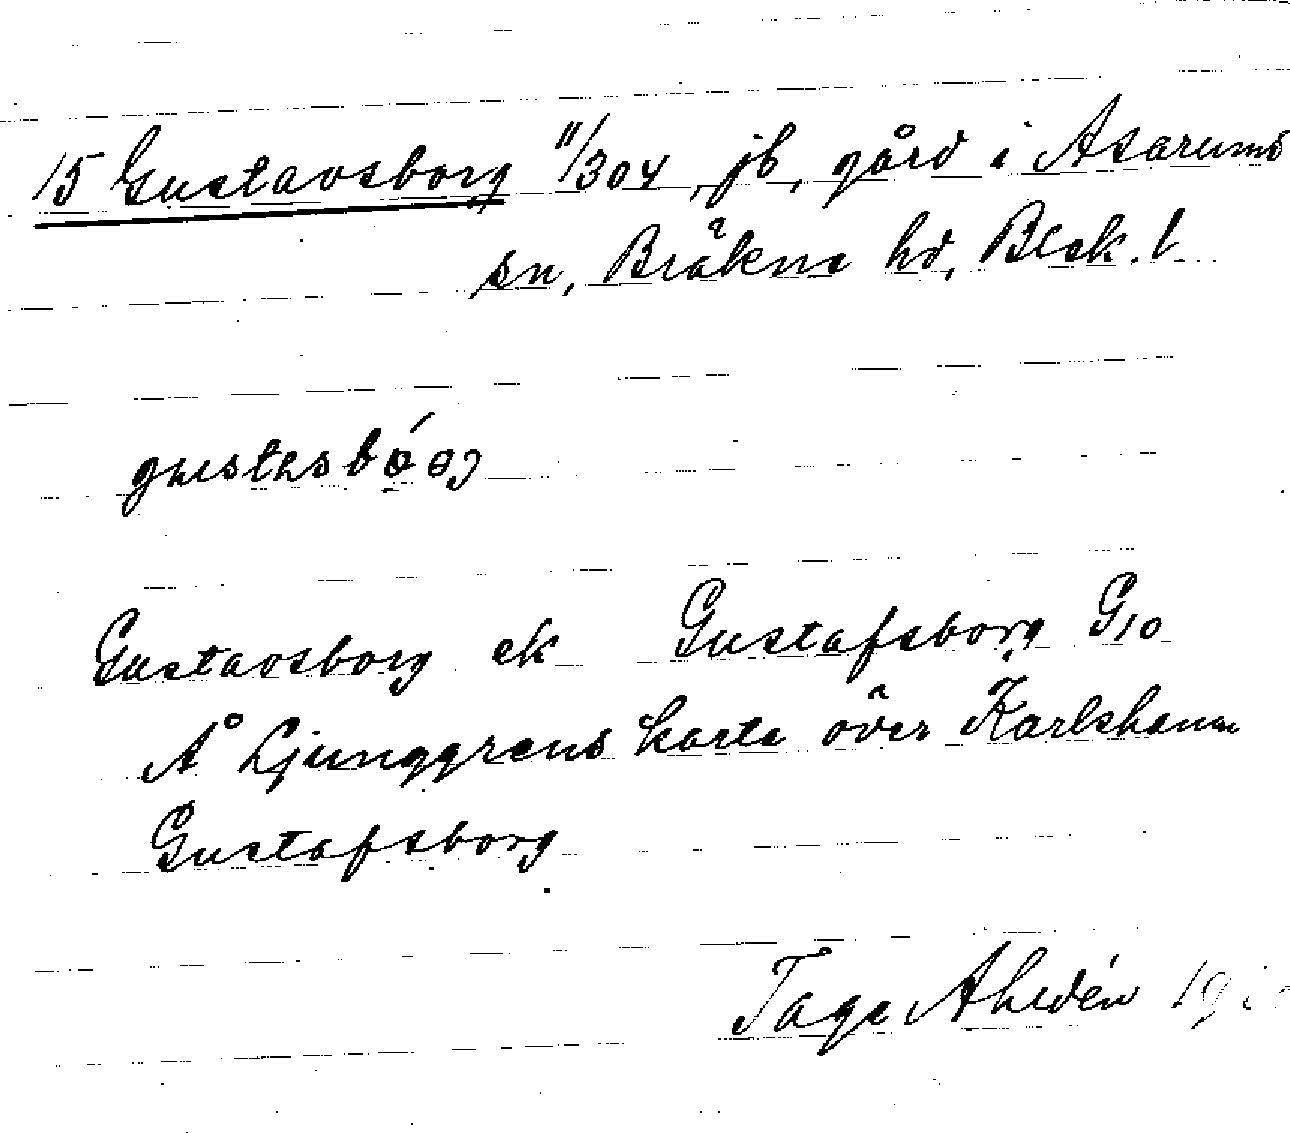 15 Gustavsborg 11/304, jb, gård i Asarums
sn, Bräkne hd, Blek. l.
Gustavsborg ek Gustafsborg G10
Å Ljunggrens karta över Karlshamn
Gustafsborg
Tage Ahldén